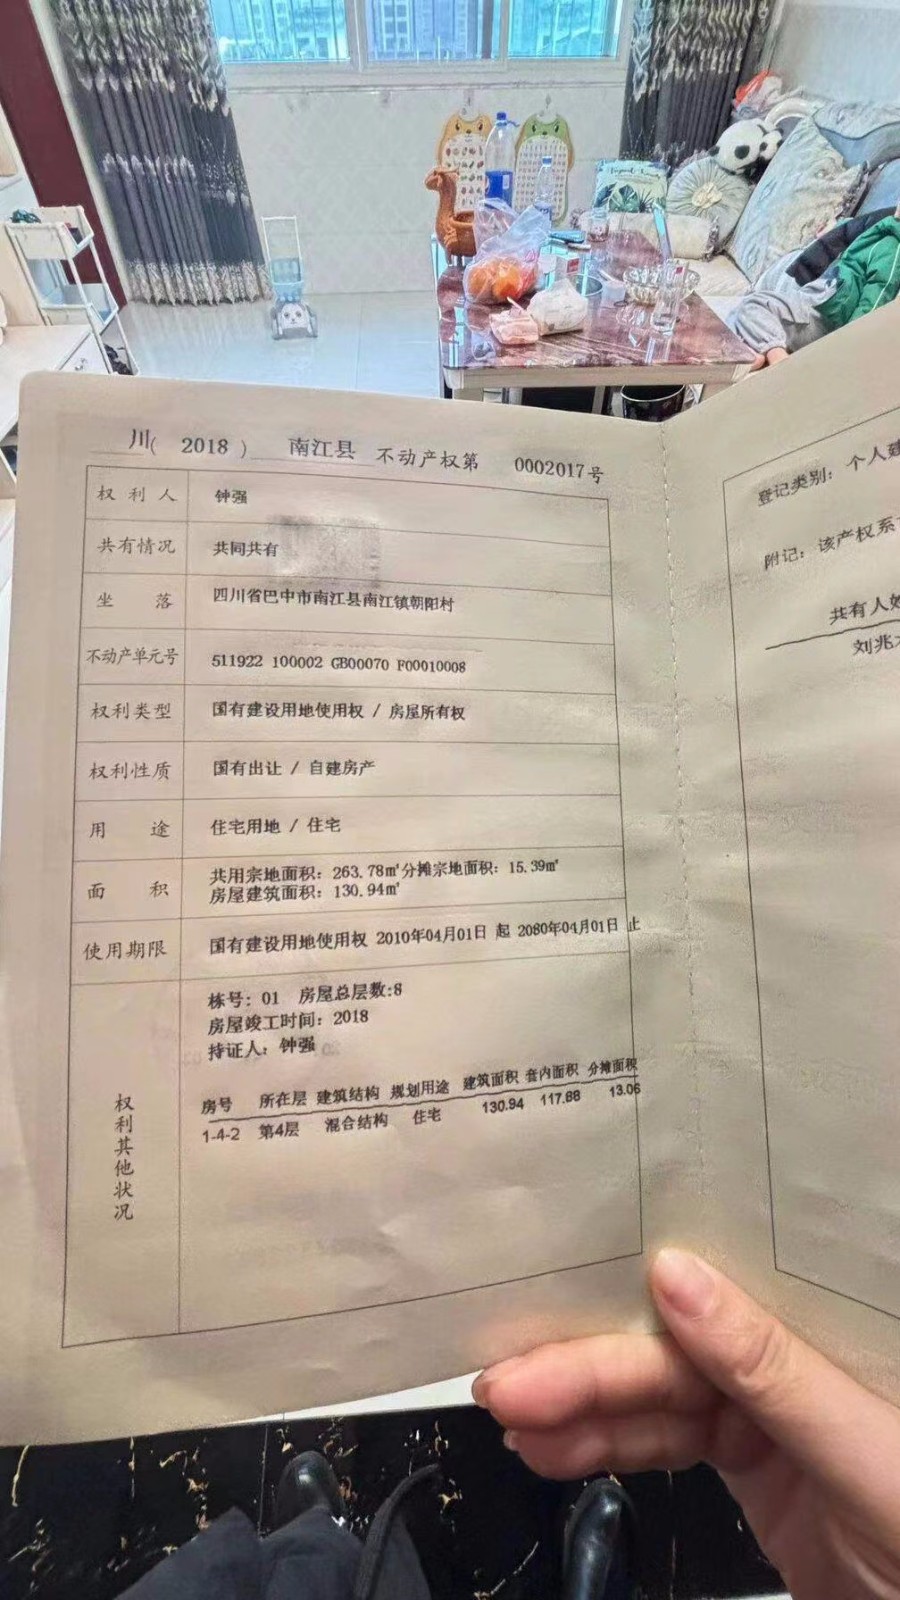 川( 2018 ) 南江县 不动产权第 0002017号
权利人 钟强
共有情况 共同共有
坐落 四川省巴中市南江县南江镇朝阳村
不动产单元号 511922 100002 GB00070 F00010008
权利类型 国有建设用地使用权 / 房屋所有权
权利性质 国有出让 / 自建房产
用途 住宅用地 / 住宅
面积 共用宗地面积：263.78㎡分摊宗地面积：15.39㎡
房屋建筑面积：130.94㎡
使用期限 国有建设用地使用权 2010年04月01日 起 2080年04月01日 止
权利其他状况
栋号：01 房屋总层数:8
房屋竣工时间：2018
持证人：钟强
房号 所在层 建筑结构 规划用途 建筑面积 套内面积 分摊面积
1-4-2 第4层 混合结构 住宅 130.94 117.88 13.06
登记类别：个人建
附记：该产权系
共有人姓
刘兆